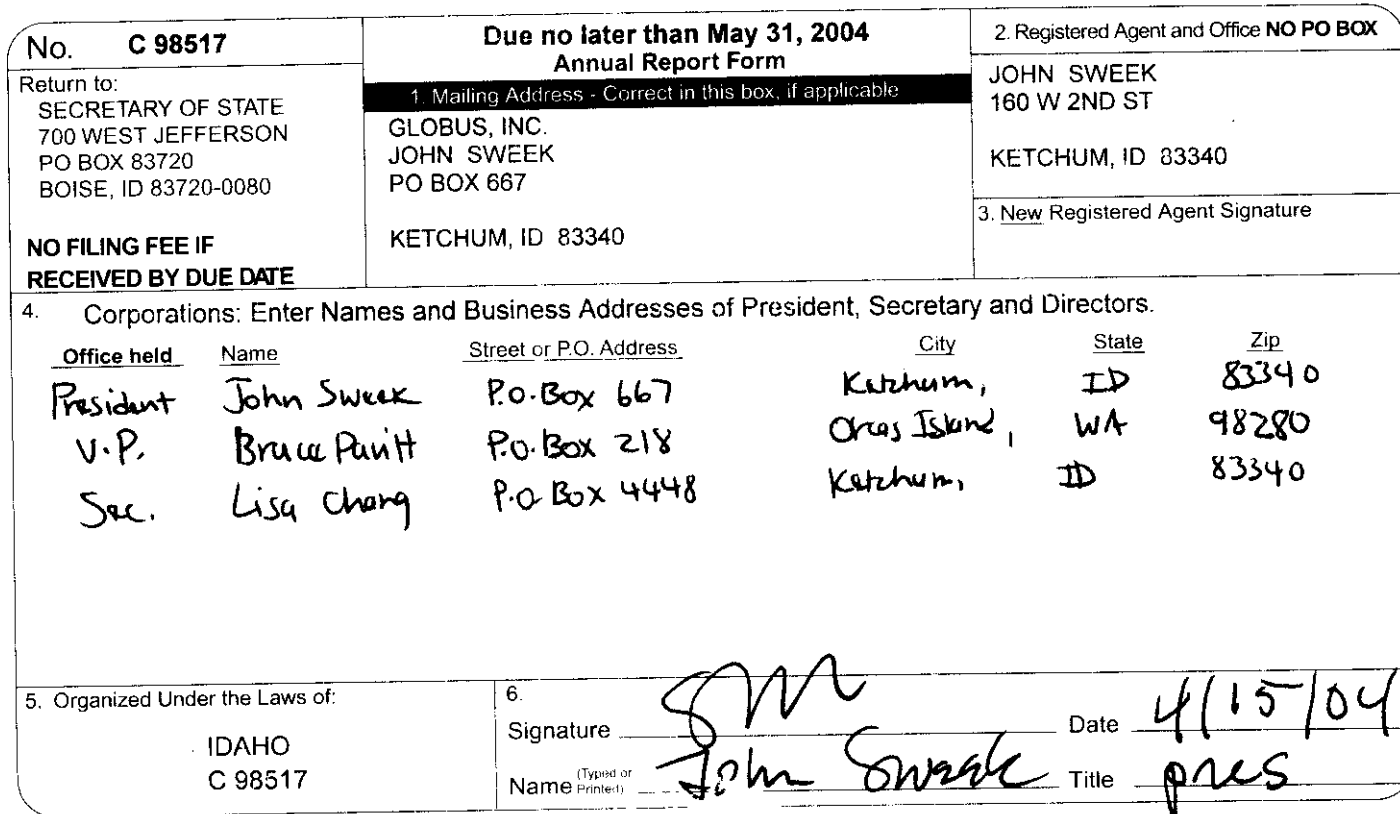 No. C 98517
Return to:
SECRETARY OF STATE
700 WEST JEFFERSON
PO BOX 83720
BOISE, ID 83720-0080
NO FILING FEE IF
RECEIVED BY DUE DATE
Due no later than May 31, 2004
Annual Report Form
1. Mailing Address - Correct in this box, if applicable
GLOBUS, INC.
JOHN SWEEK
PO BOX 667
KETCHUM, ID 83340
2. Registered Agent and Office NO PO BOX
JOHN SWEEK
160 W 2ND ST
KETCHUM, ID 83340
3. New Registered Agent Signature
4. Corporations: Enter Names and Business Addresses of President, Secretary and Directors.
Office held Name Street or P.O. Address City State Zip
President John Sweek P.O. Box 667 Ketchum, ID 83340
V.P. Bruce Pavitt P.O. Box 218 Orcas Island, WA 98280
Sec. Lisa Chang P.O Box 4448 Ketchum, ID 83340
5. Organized Under the Laws of:
IDAHO
C 98517
6.
Signature Date 4/15/04
Name (Typed or Printed) John Sweek Title pres